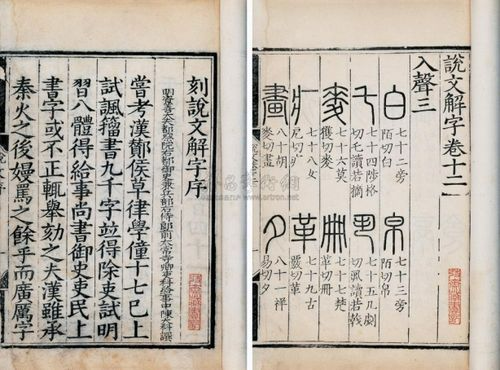 說文解字卷十二
入聲三
白 七十二旁陌切白 帛 七十三旁陌切
乇 七十四陟格切乇讀若摘 丮 七十五几劇切讀若戟
麥 七十六莫獲切麥 冊 七十七楚革切冊
疒 七十八女切疒 革 七十九古覈切革
畫 八十胡麥切畫 夕 八十一祥易切夕
刻說文解字序
兵部右侍郎前太常寺少卿吏科給事中陳大科撰
嘗考漢鄼侯草律學僮十七已上
試諷籀書九千字竝得除吏試明
習八體得給事尚書御史吏民上
書字或不正輒舉劾之夫漢雖承
秦火之後嫚罵之餘乎而廣厲字